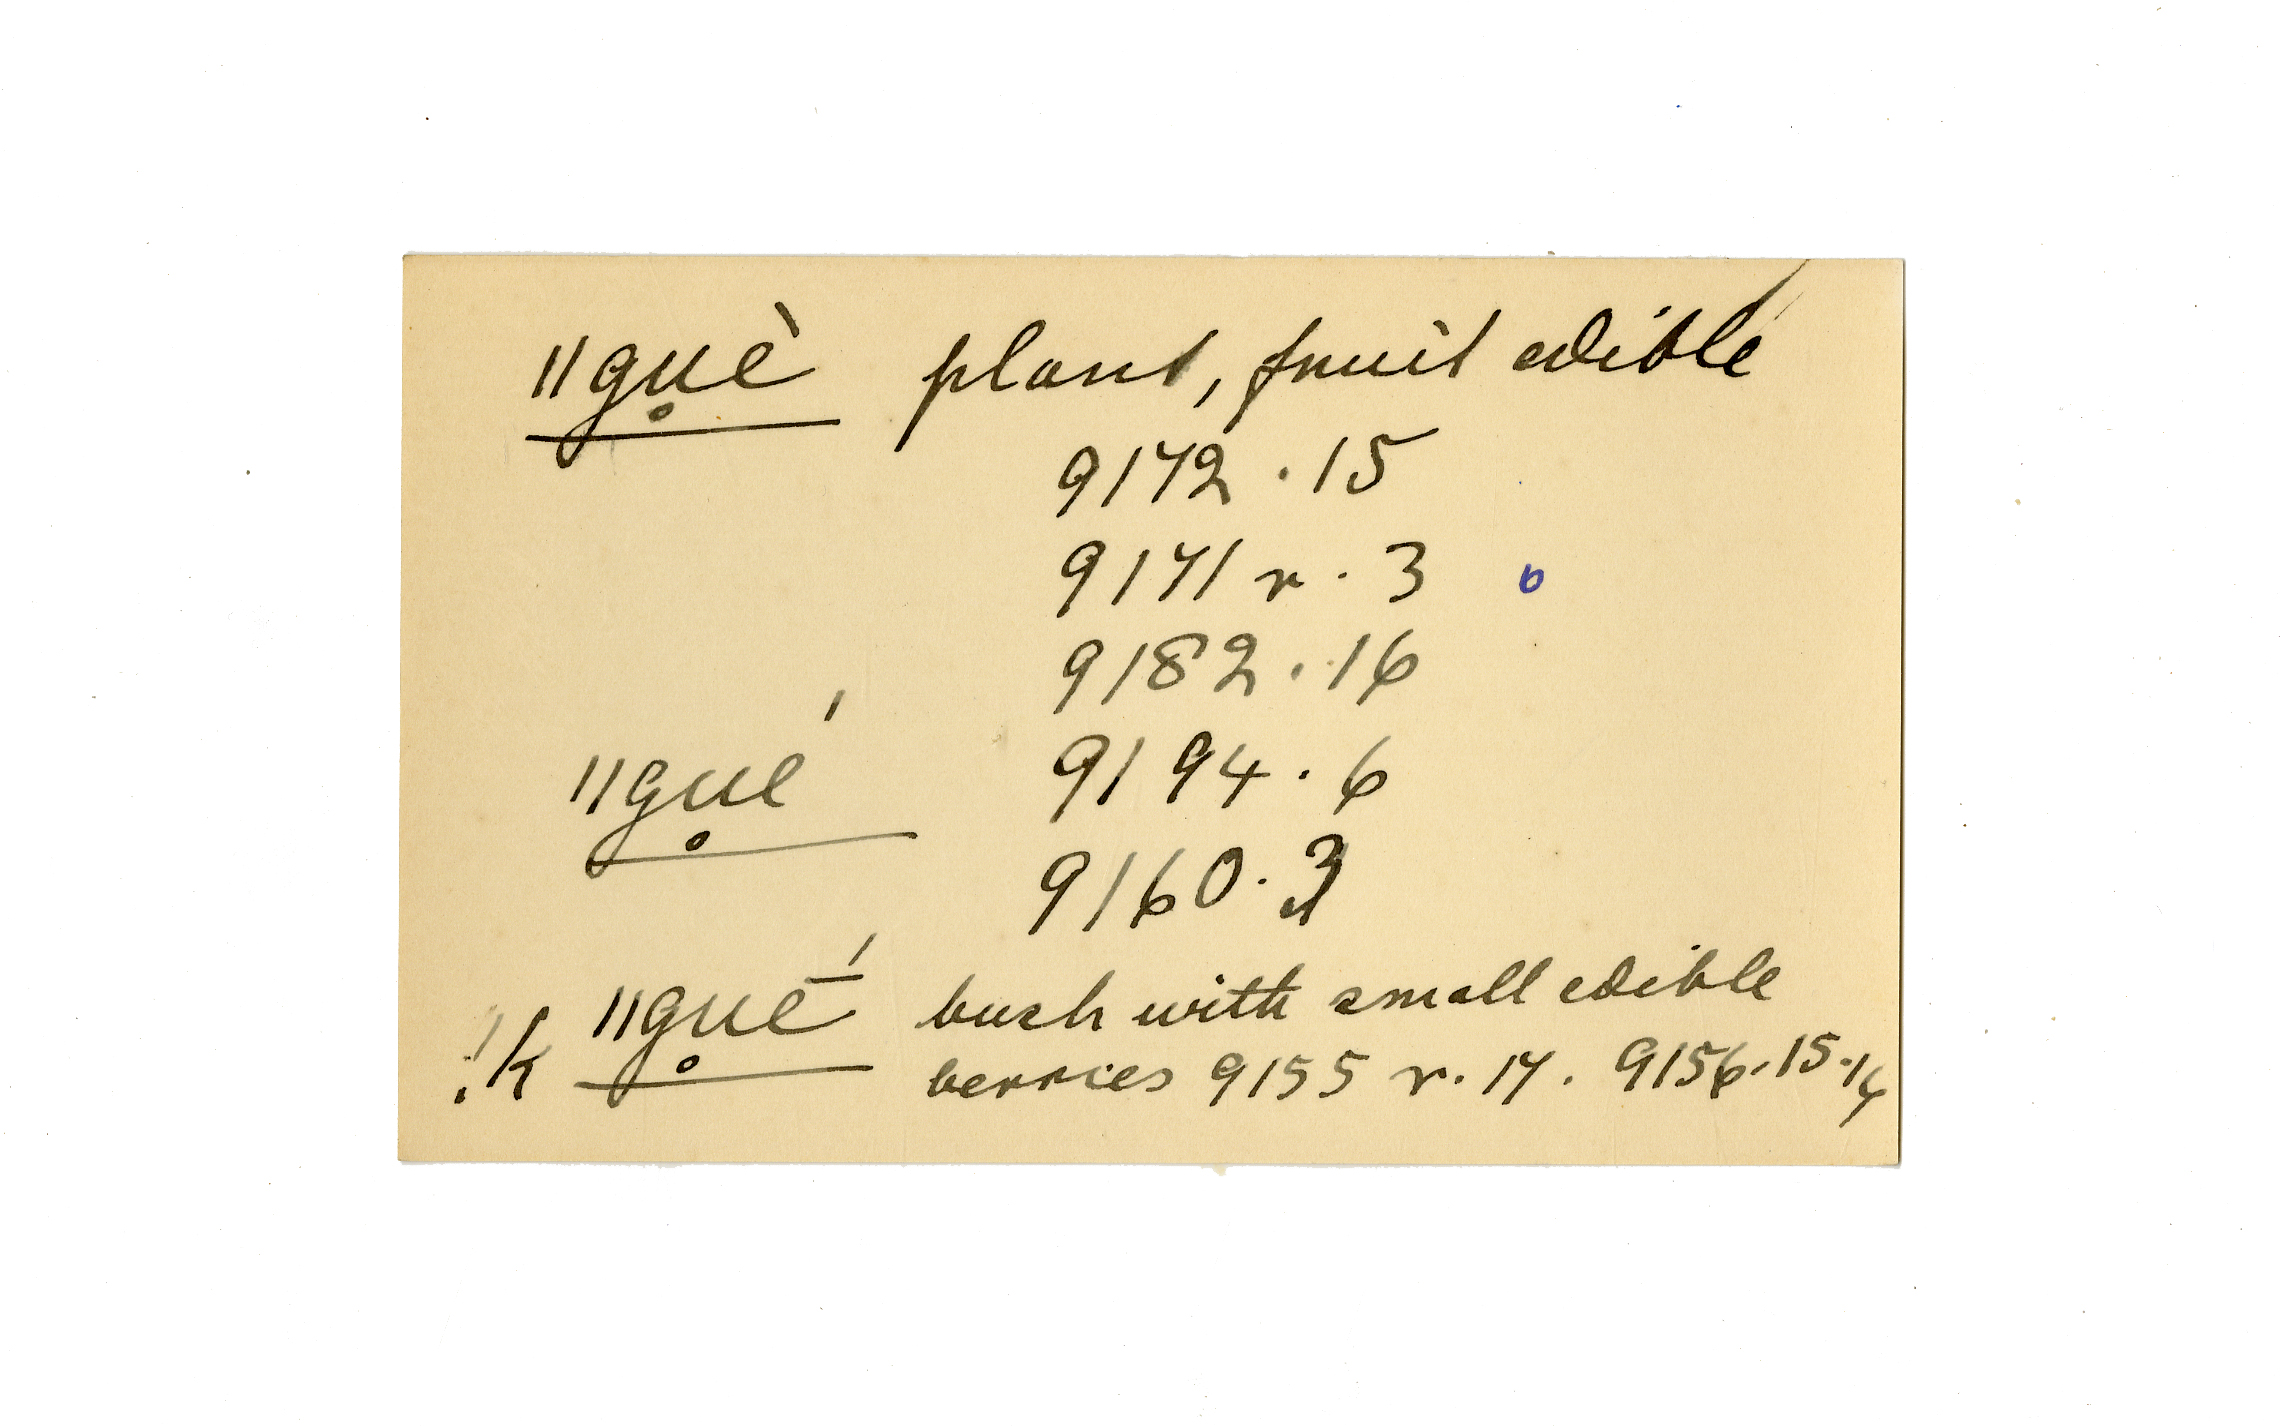 ǁgu̥è plant, fruit edible
9172 . 15
9171 r . 3
9182 . 16
ǁgu̥é 9194 . 6
9160 . 3
!k ǁgu̥é̄ bush with small edible
berries 9155 r. 17. 9156. 15.16